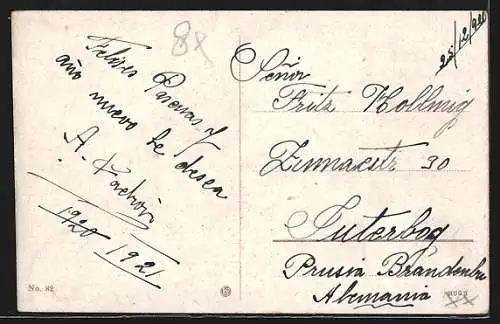 8x
Felices Pascuas y
año nuevo le desea
A.
1920 1921
No. 82
25/12/920
Señor
Fritz Hollmig
30
Juterbog
Prusia Brandenbu
Alemania